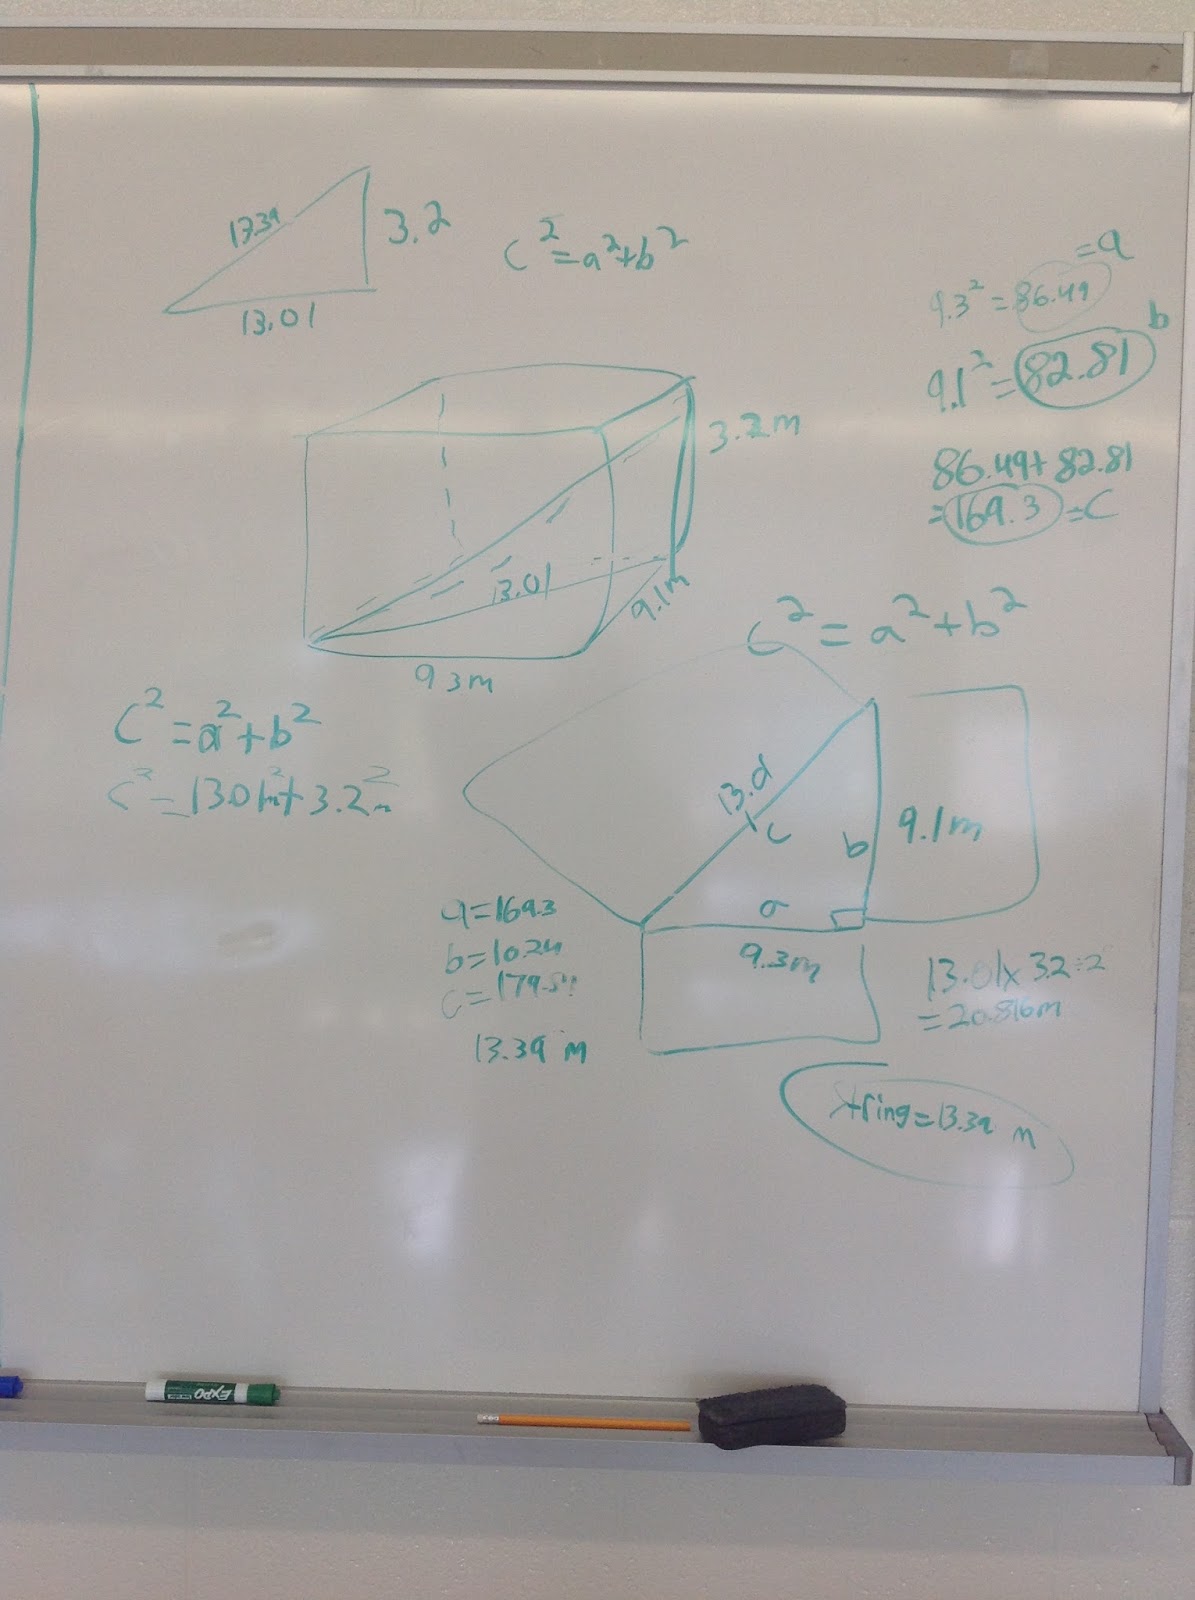 13.39
3.2
13.01
c²=a²+b²
=a
9.3²=86.49
b
9.1²=82.81
86.49+82.81
=169.3=C
3.2m
13.01
9.1m
9.3m
c²=a²+b²
c²=a²+b²
c²=13.01m²+3.2m²
13.01
c
b
9.1m
a
9.3m
a=169.3
b=10.24
c=179.54
13.39 m
13.01x3.2÷2
=20.816m
string=13.39 m
EXPO